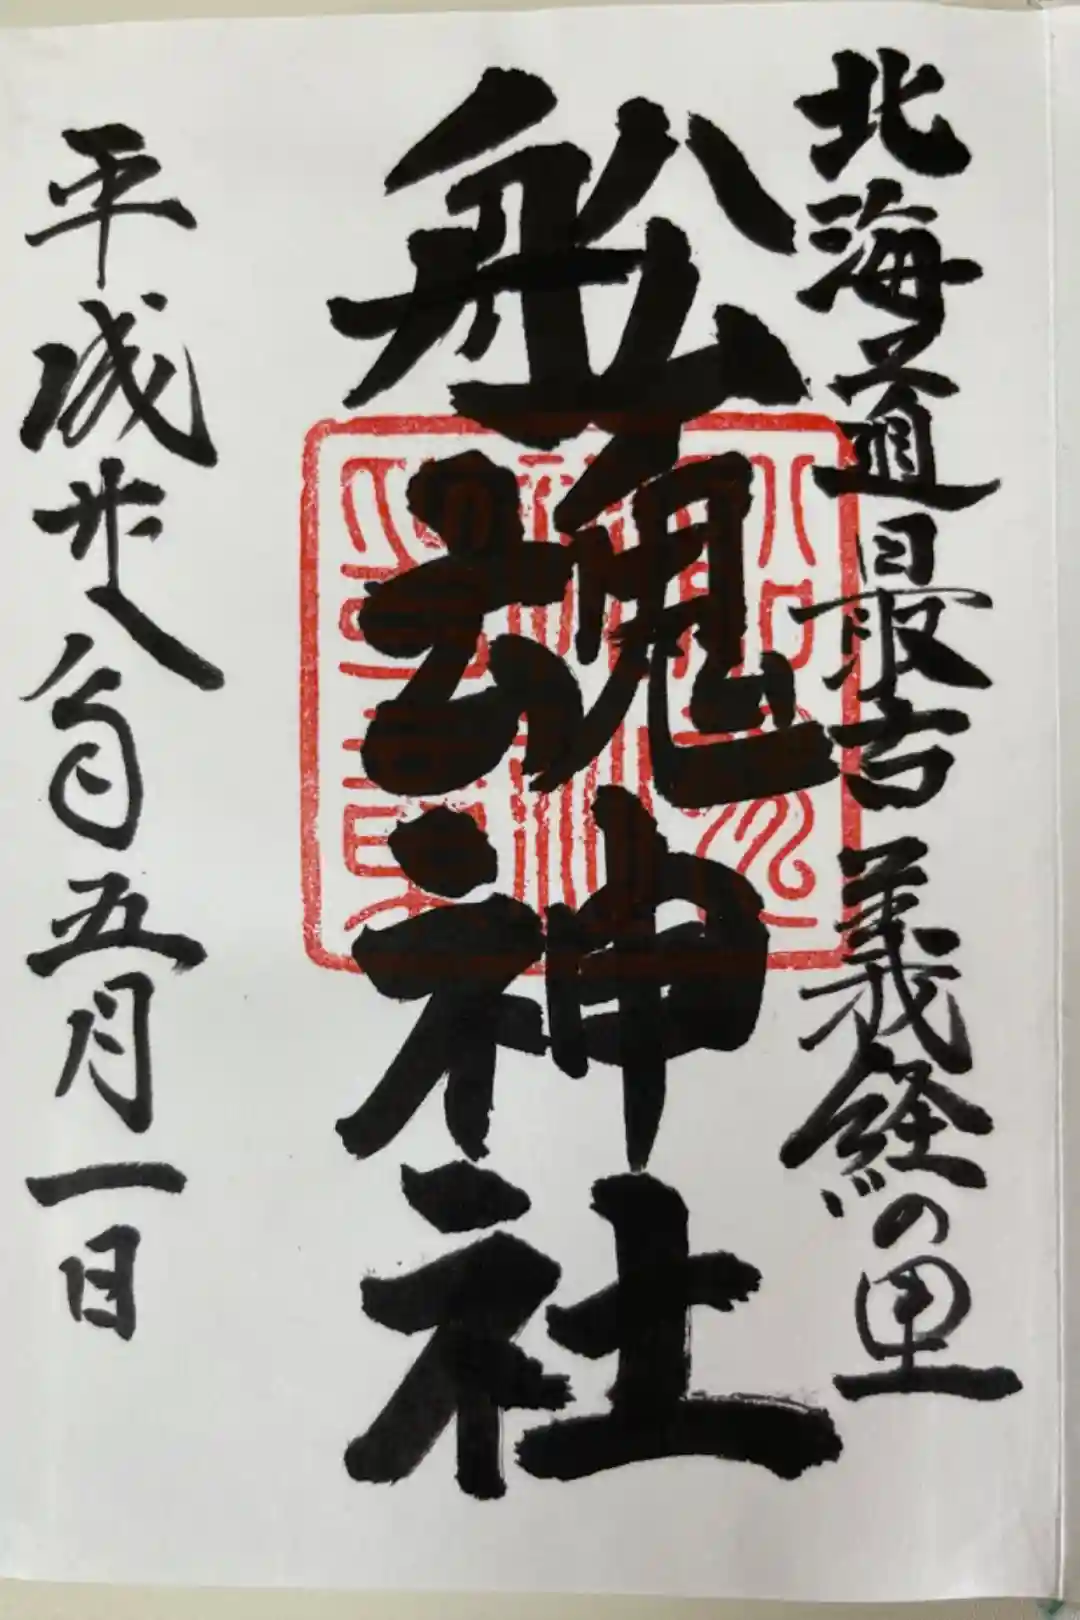 北海道最古 義経の里
舩魂神社
平成廿八年五月一日